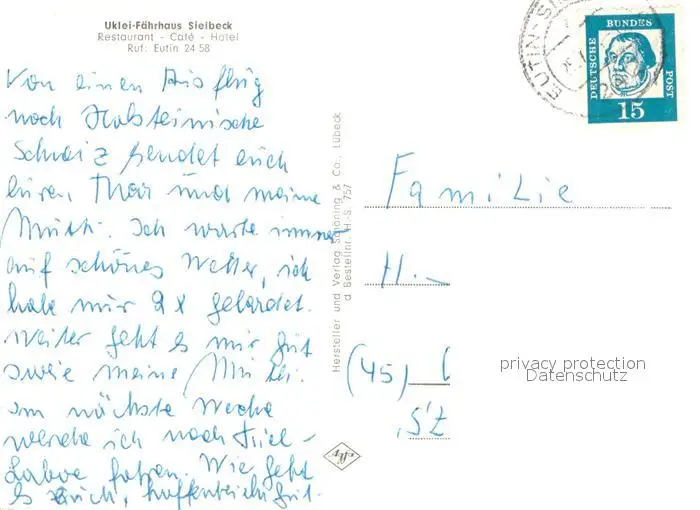 Uklei-Fährhaus Sielbeck
Restaurant - Café - Hotel
Ruf: Eutin 24 58
Von einen Ausflug
nach Holsteinische
Schweiz sendet euch
und meine
Mutti. Ich warte immer
auf schönes Wetter, ich
habe nur 2x gebadet.
Weiter geht es mir gut
sowie meine Mutti.
am nächste Woche
werde ich nach Kiel-
Laboe fahren. Wie geht
es Euch, hoffentlich gut.
Hersteller und Verlag Schöning & Co., Lübeck
Bestellnr. H.-S. 757
EUTIN-SIE
DEUTSCHE
BUNDES
POST
15
Familie
H.
(45)
privacy protection
Datenschutz